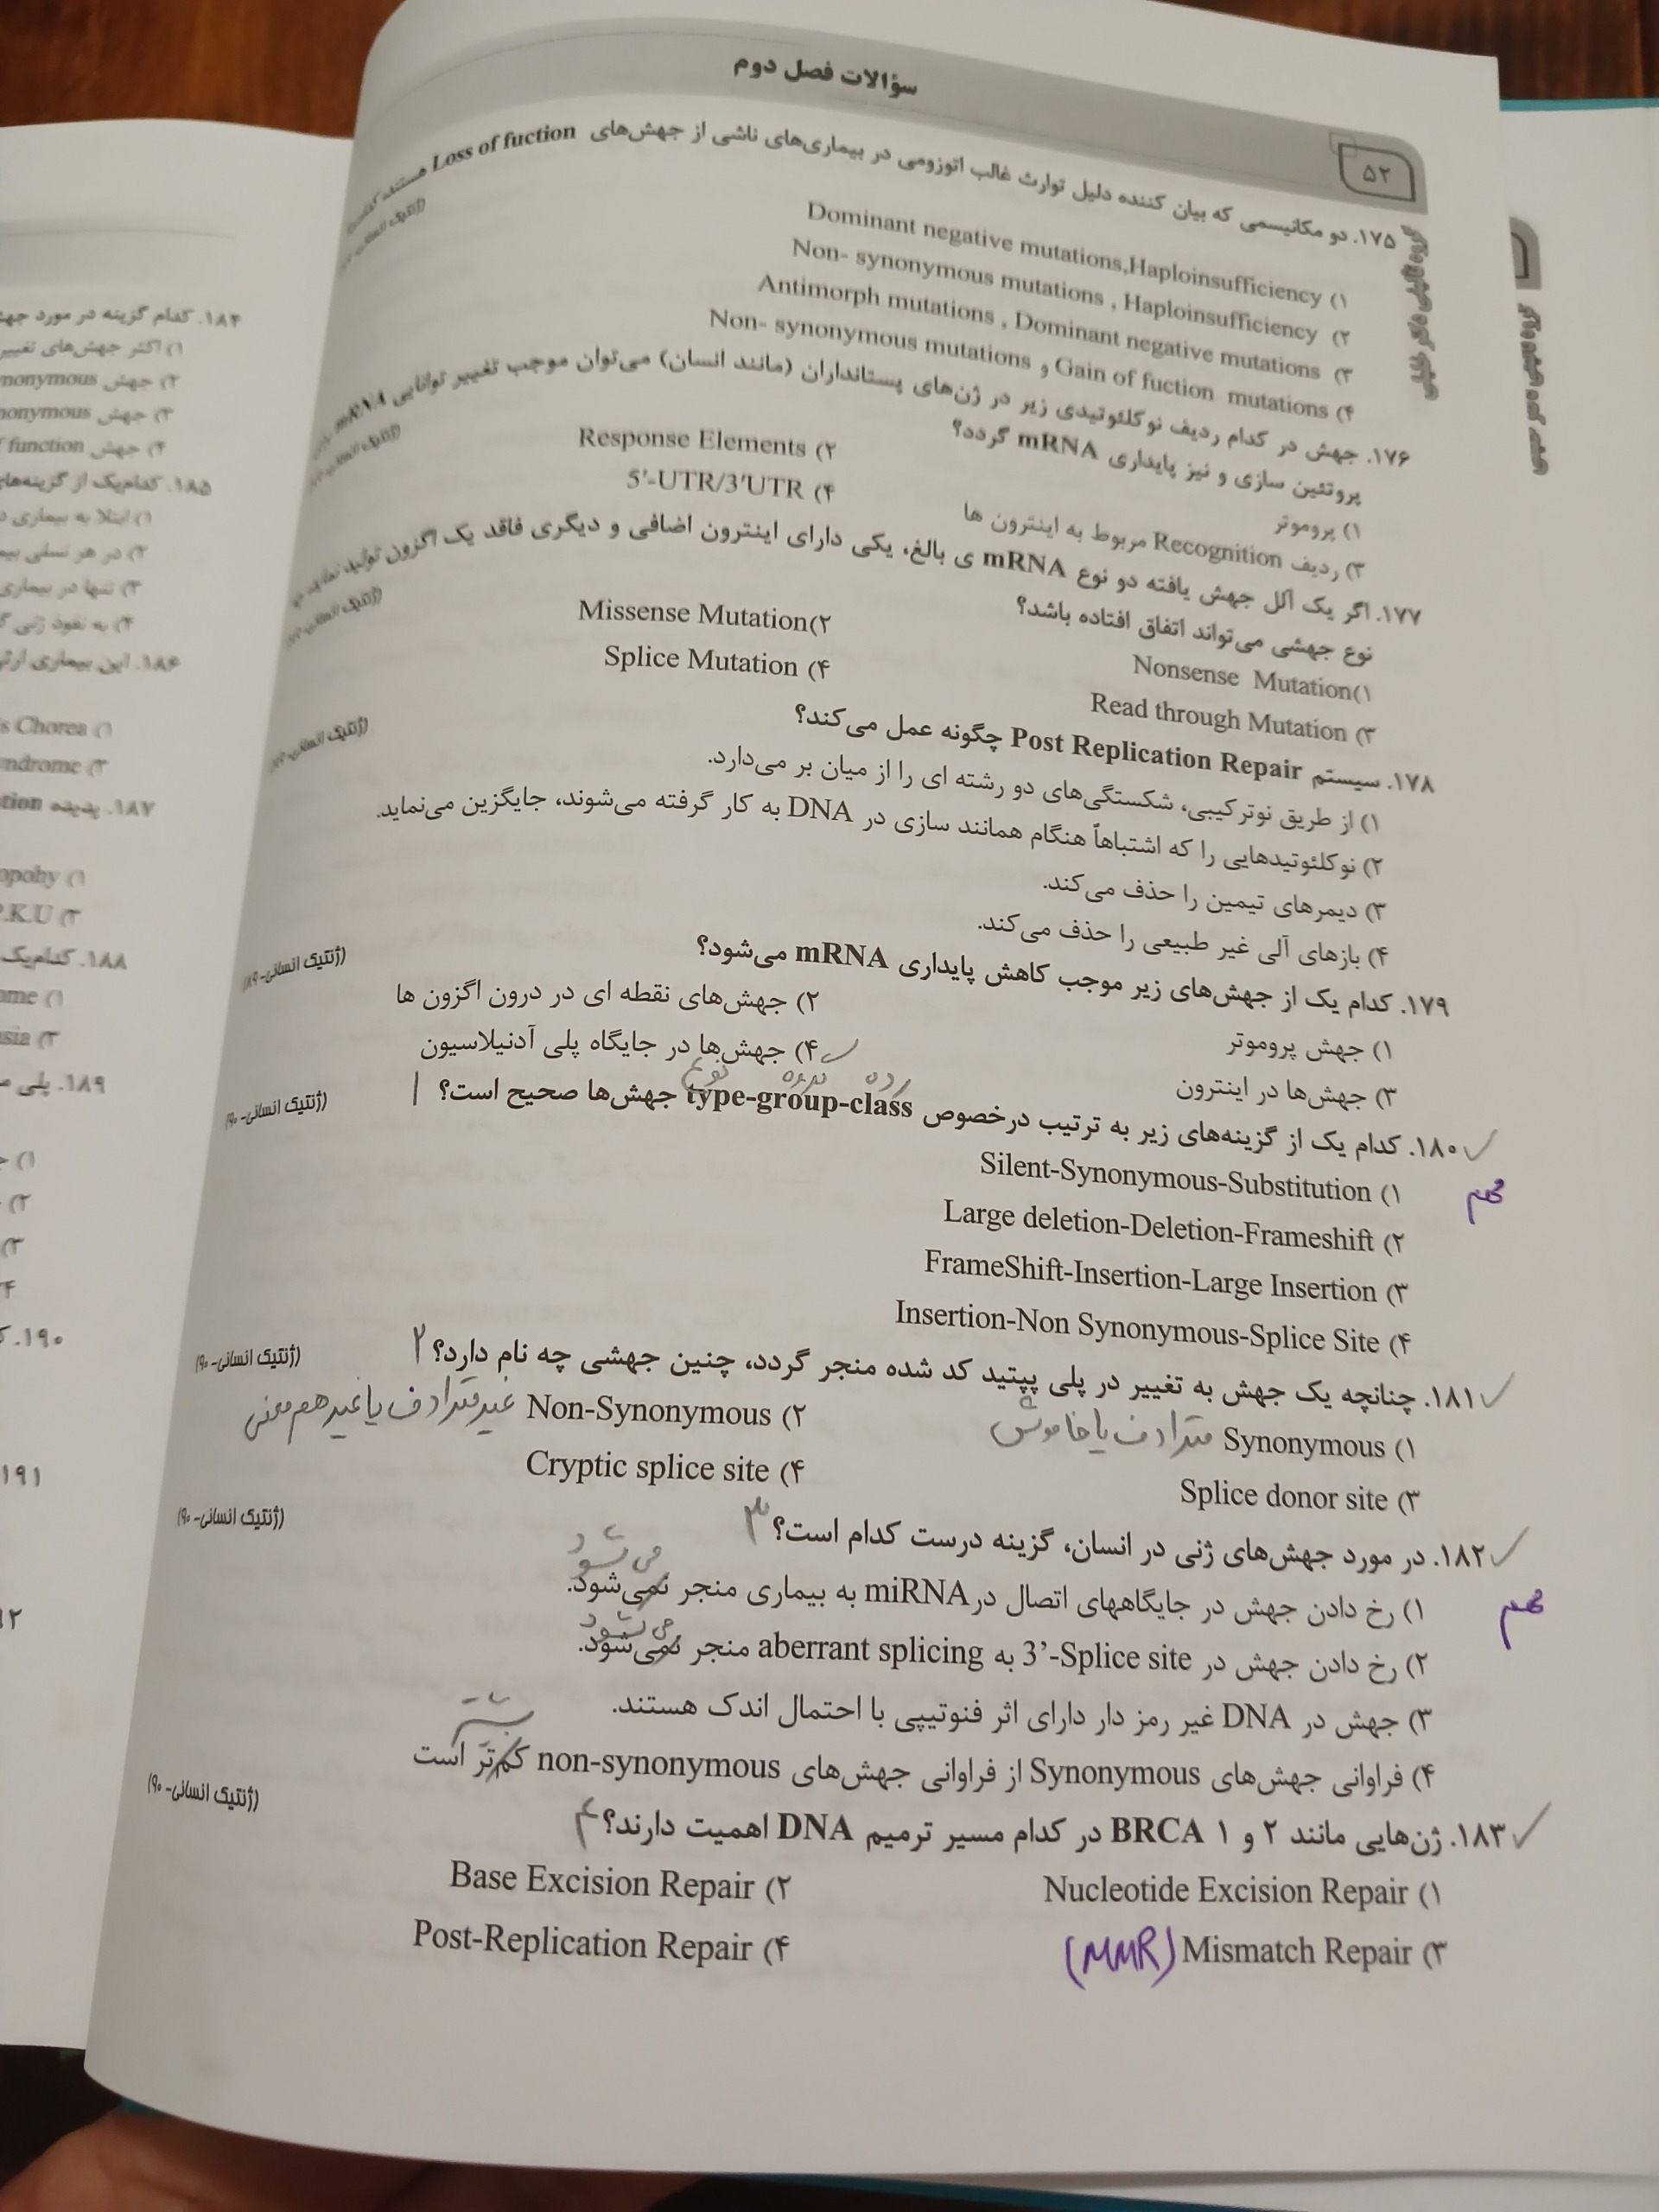 سؤالات فصل دوم
۵۲
۱۷۵. دو مکانیسمی که بیان کننده دلیل توارث غالب اتوزومی در بیماری‌های ناشی از جهش‌های Loss of fuction هستند کدامند؟
۱) Dominant negative mutations,Haploinsufficiency
۲) Non- synonymous mutations , Haploinsufficiency
۳) Antimorph mutations , Dominant negative mutations
۴) Non- synonymous mutations و Gain of fuction mutations
۱۷۶. جهش در کدام ردیف نوکلئوتیدی زیر در ژن‌های پستانداران (مانند انسان) می‌توان موجب تغییر توانایی mRNA
پروتئین سازی و نیز پایداری mRNA گردد؟
۱) پروموتر ۲) Response Elements
۳) ردیف Recognition مربوط به اینترون ها ۴) 5'-UTR/3'UTR
۱۷۷. اگر یک آلل جهش یافته دو نوع mRNA ی بالغ، یکی دارای اینترون اضافی و دیگری فاقد یک اگزون تولید نماید،
نوع جهشی می‌تواند اتفاق افتاده باشد؟
۱)Nonsense Mutation ۲)Missense Mutation
۳) Read through Mutation ۴) Splice Mutation
۱۷۸. سیستم Post Replication Repair چگونه عمل می‌کند؟
۱) از طریق نوترکیبی، شکستگی‌های دو رشته ای را از میان بر می‌دارد.
۲) نوکلئوتیدهایی را که اشتباهاً هنگام همانند سازی در DNA به کار گرفته می‌شوند، جایگزین می‌نماید.
۳) دیمرهای تیمین را حذف می‌کند.
۴) بازهای آلی غیر طبیعی را حذف می‌کند.
۱۷۹. کدام یک از جهش‌های زیر موجب کاهش پایداری mRNA می‌شود؟ (ژنتیک انسانی-۸۹)
۱) جهش پروموتر ۲) جهش‌های نقطه ای در درون اگزون ها
۳) جهش‌ها در اینترون ۴) جهش‌ها در جایگاه پلی آدنیلاسیون
نوع گروه رده
۱۸۰. کدام یک از گزینه‌های زیر به ترتیب درخصوص type-group-class جهش‌ها صحیح است؟ ۱ (ژنتیک انسانی-۹۰)
۱) Silent-Synonymous-Substitution
مهم
۲) Large deletion-Deletion-Frameshift
۳) FrameShift-Insertion-Large Insertion
۴) Insertion-Non Synonymous-Splice Site
۱۸۱. چنانچه یک جهش به تغییر در پلی پپتید کد شده منجر گردد، چنین جهشی چه نام دارد؟ ۲ (ژنتیک انسانی-۹۰)
۱) Synonymous مترادف یا خاموش ۲) Non-Synonymous غیرمترادف یا غیر هم معنی
۳) Splice donor site ۴) Cryptic splice site
۱۸۲. در مورد جهش‌های ژنی در انسان، گزینه درست کدام است؟ ۳ (ژنتیک انسانی-۹۰)
می شود
۱) رخ دادن جهش در جایگاههای اتصال در miRNA به بیماری منجر نمی‌شود.
مهم
می شود
۲) رخ دادن جهش در 3’-Splice site به aberrant splicing منجر نمی‌شود.
۳) جهش در DNA غیر رمز دار دارای اثر فنوتیپی با احتمال اندک هستند.
بیشتر
۴) فراوانی جهش‌های Synonymous از فراوانی جهش‌های non-synonymous کم‌تر است
۱۸۳. ژن‌هایی مانند ۲ و ۱ BRCA در کدام مسیر ترمیم DNA اهمیت دارند؟ ۴ (ژنتیک انسانی-۹۰)
۱) Nucleotide Excision Repair ۲) Base Excision Repair
۳) Mismatch Repair (MMR) ۴) Post-Replication Repair
۱۸۴. کدام گزینه در مورد
۱) اکثر جهش‌های
۲) جهش
۳) جهش
۴) جهش
۱۸۵. کدام‌یک از
۱) ابتلا به بیماری
۲) در هر نسلی
۳) تنها در بیماری
۴) به نفوذ ژنی
۱۸۶. این بیماری
۱) Chorea
۱۸۷. پدیده
۳) P.K.U
۱۸۸. کدام‌یک
۱۸۹. پلی
۱۹۰.